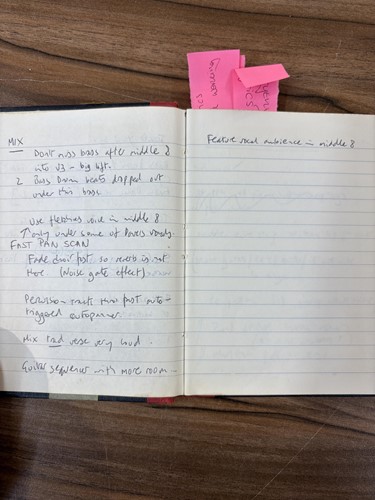 MIX
Don't miss bass after middle 8
into V3 - big lift.
2 Bass Drum beats dropped out
under this bass.
Use voice in middle 8
↑ only under some of vocals.
FAST PAN SCAN
Fade choir fast so reverb is not
there. (Noise gate effect)
Percussion tracks thru fast auto-
triggered autopanner.
Mix 2nd verse very loud.
Guitar sequencer with more room -
Feature vocal ambience in middle 8